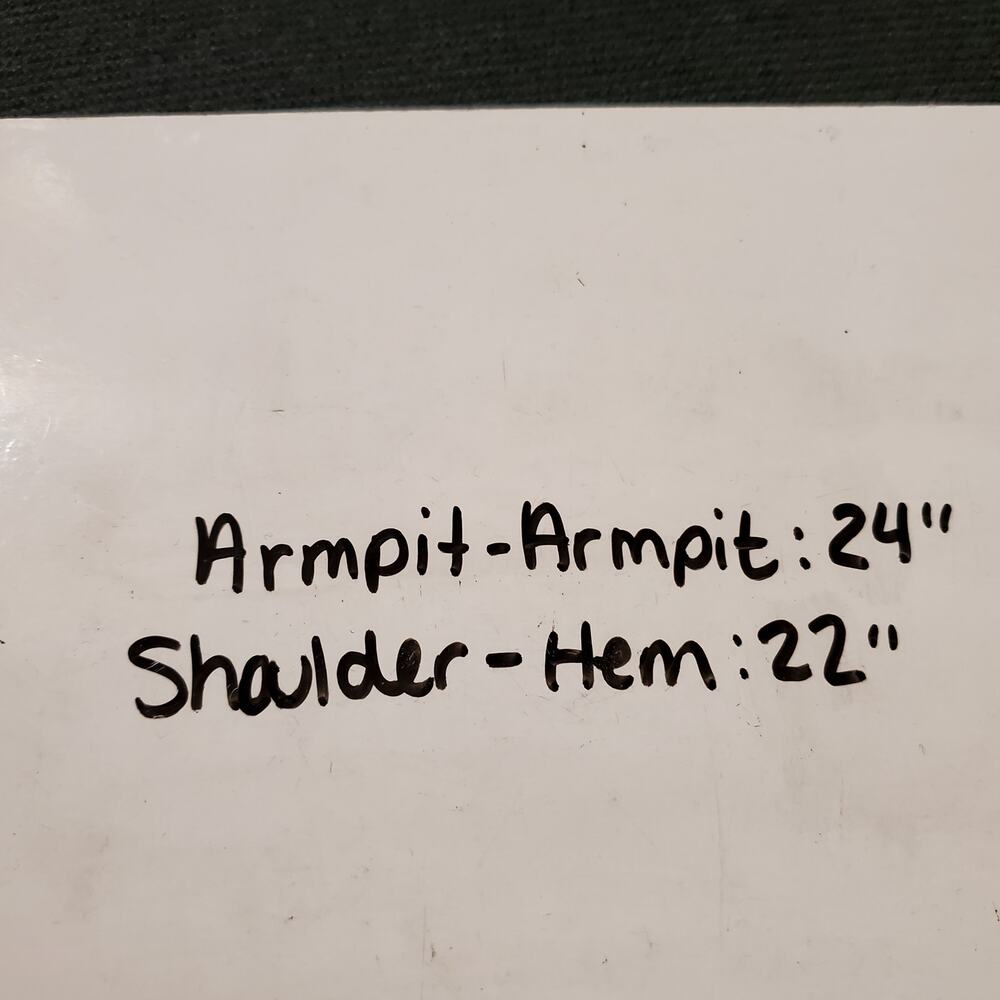 Armpit-Armpit: 24"
Shoulder-Hem: 22"